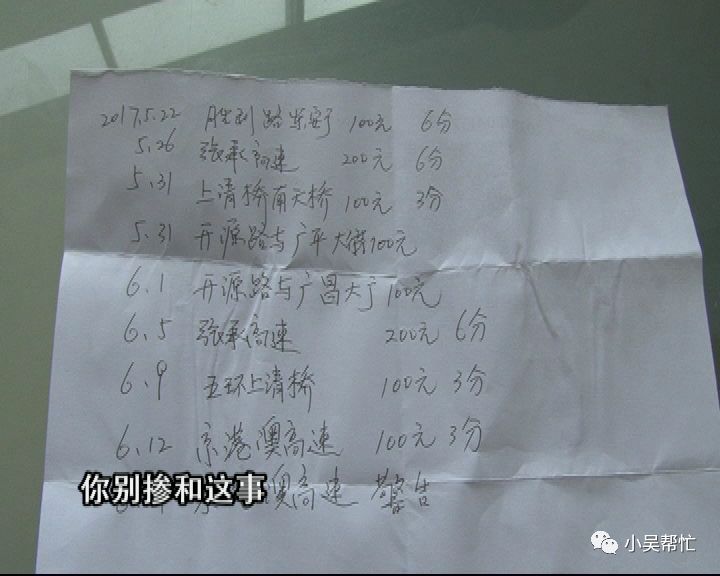 2017.5.22 胜利路 100元 6分
5.26 张承高速 200元 6分
5.31 上清桥南天桥 100元 3分
5.31 开源路与广平大街100元
6.1 开源路与广昌大 100元
6.5 张承高速 200元 6分
6.9 五环上清桥 100元 3分
6.12 京港澳高速 100元 3分
澳高速 警告
你别掺和这事
小吴帮忙